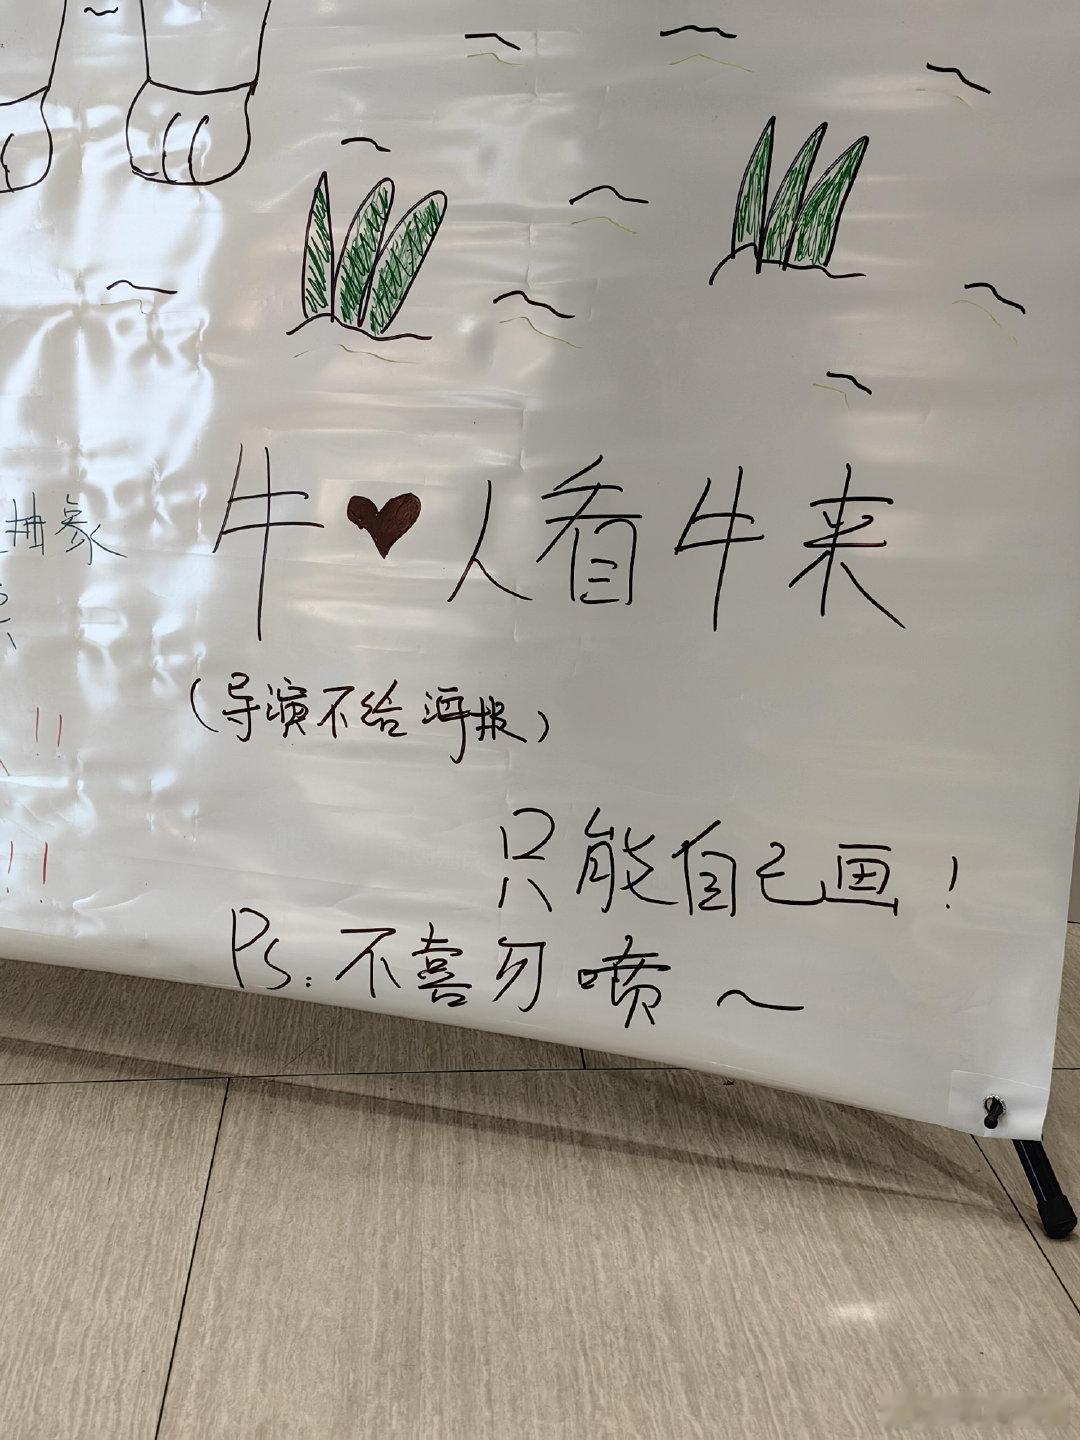 牛❤人看牛来
抽象
(导演不给海报)
!!
只能自己画!
!!
Ps:不喜勿喷~